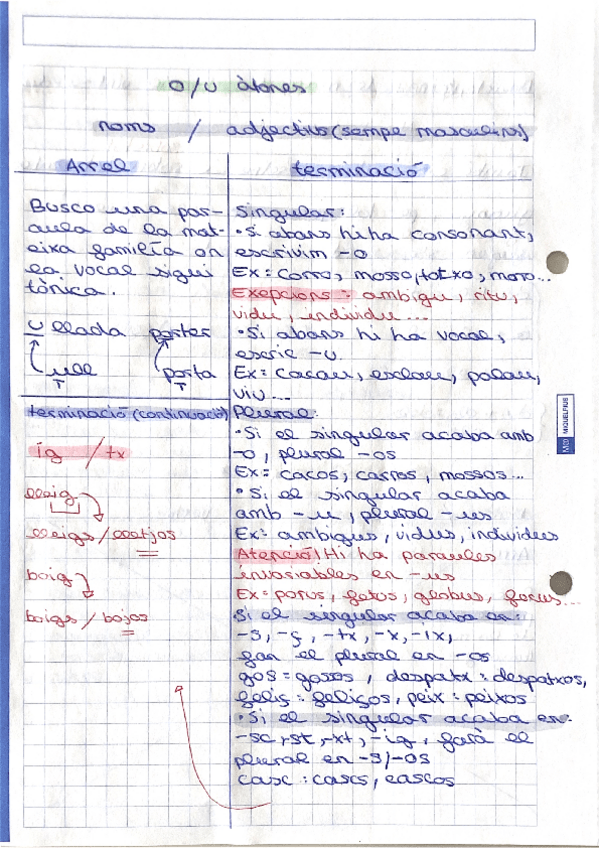 O/U àtones
noms / adjectius (sempe masculins)
Arrel
Busco una par-
aula de la mat-
eixa família on
la vocal sigui
tònica.
Ullada porter
ull porta
T T
terminació
Singular:
• Si abans hi ha consonant,
escrivim -o
Ex: carro, mosso, totxo, moro...
Exepcions: ambigu, ritu,
vidu, individu...
• Si abans hi ha vocal,
escric -u.
Ex: cacau, esclau, palau,
viu...
Plural:
• Si el singular acaba amb
-o, plural -os
Ex: cacos, carros, mossos...
• Si el singular acaba
amb -u, plural -us
Ex: ambigus, vidus, individus
Atenció! Hi ha paraules
invariables en -us
Ex: porus, fetus, globus, focus...
Si el singular acaba en:
-s, -ç, -tx, -x, -ix,
fan el plural en -os
gos = gossos, despatx: despatxos,
feliç: feliços, peix: peixos
• Si el singular acaba en:
-sc, -st, -xt, -ig, farà el
plural en -s/-os
casc: cascs, cascos
terminació (continuació)
ig / tx
lleig
lleigs / lletjos
boig
boigs / bojos
MIQUELRIUS